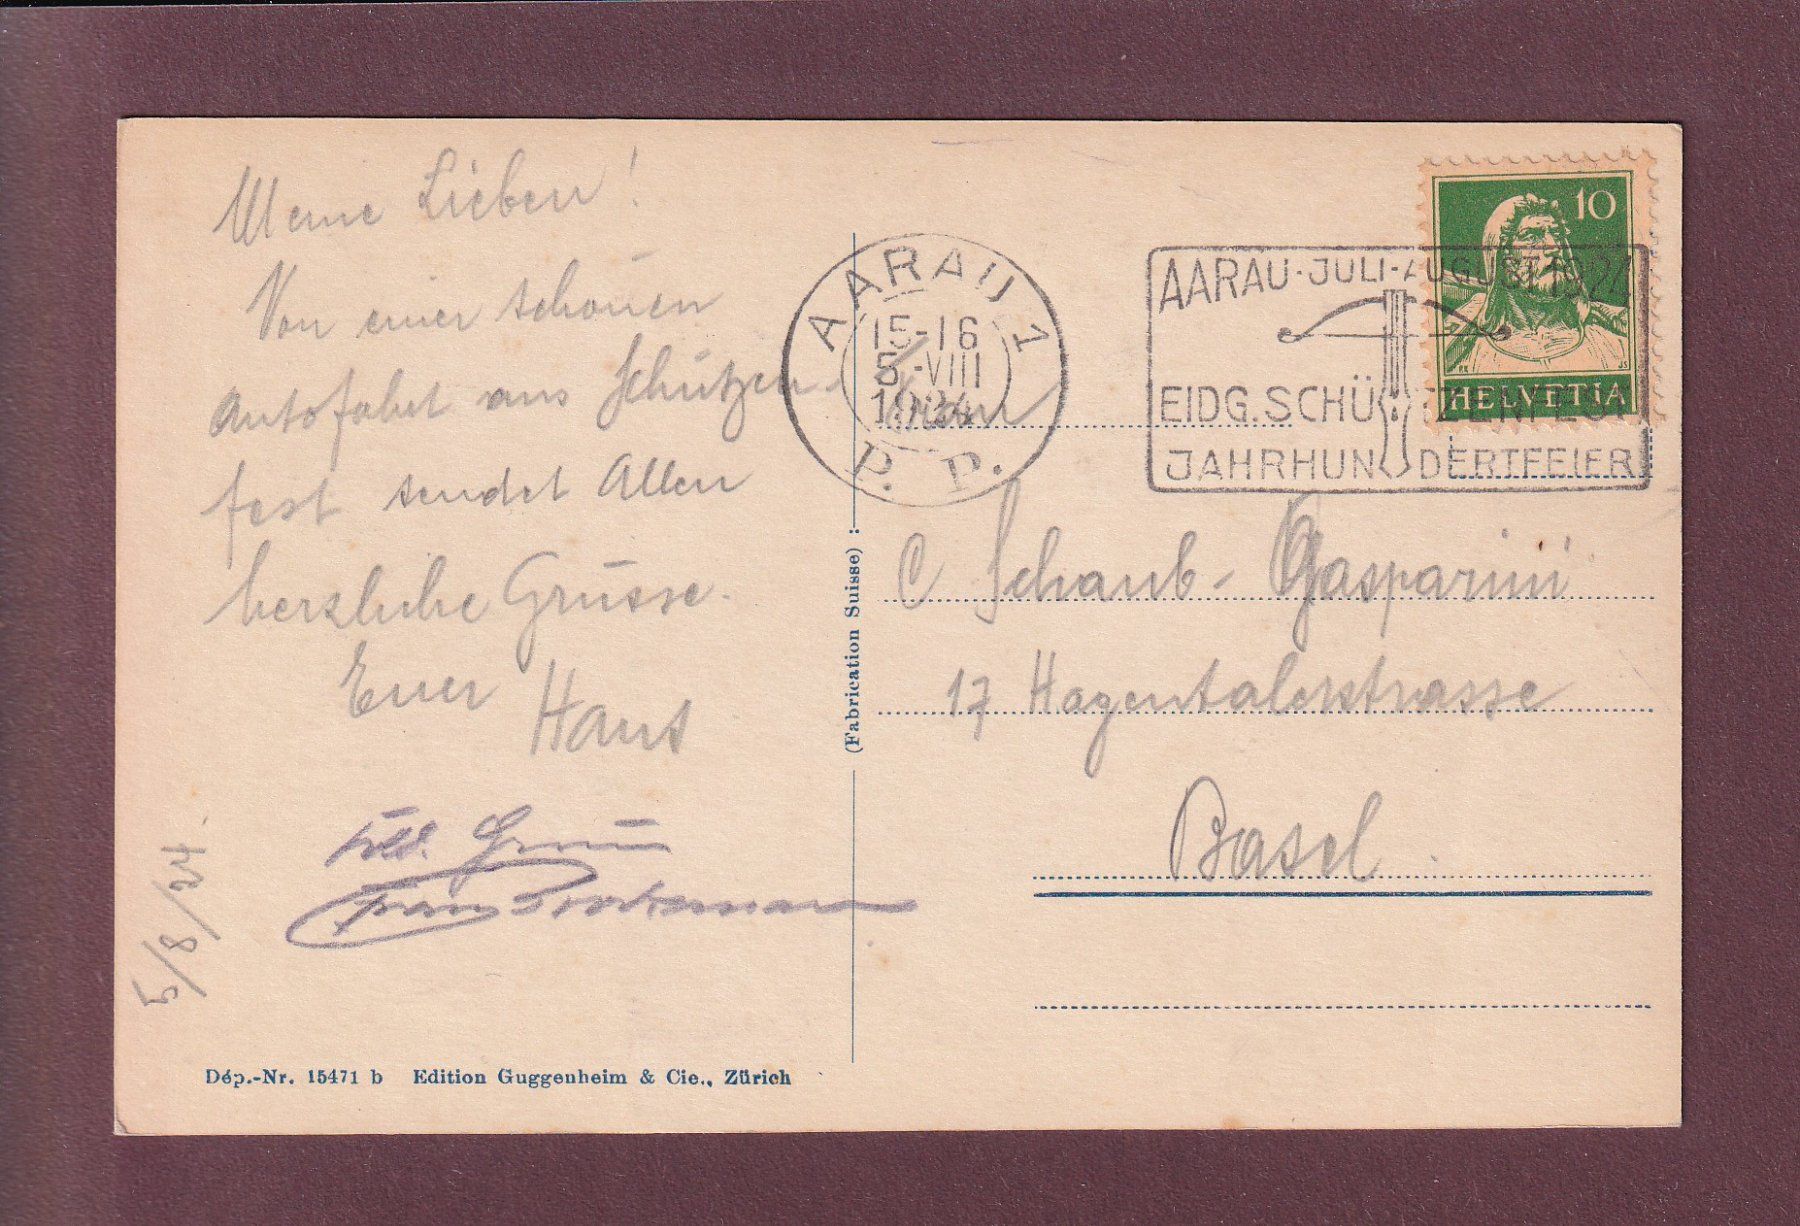 Meine Lieben!
Von einer schönen
Autofahrt ans Schützen-
fest sendet Allen
herzliche Grüsse.
Euer Hans
Frau
5/8/24.
Dép.-Nr. 15471 b Edition Guggenheim & Cie., Zürich
(Fabrication Suisse)
AARAU 1
15-16
5-VIII
1924
P. P.
AARAU-JULI-AUGUST 1924
EIDG. SCHÜTZENFEST
JAHRHUNDERTFEIER
10
HELVETIA
C Schaub-Gasparini
17 Hagentalerstrasse
Basel